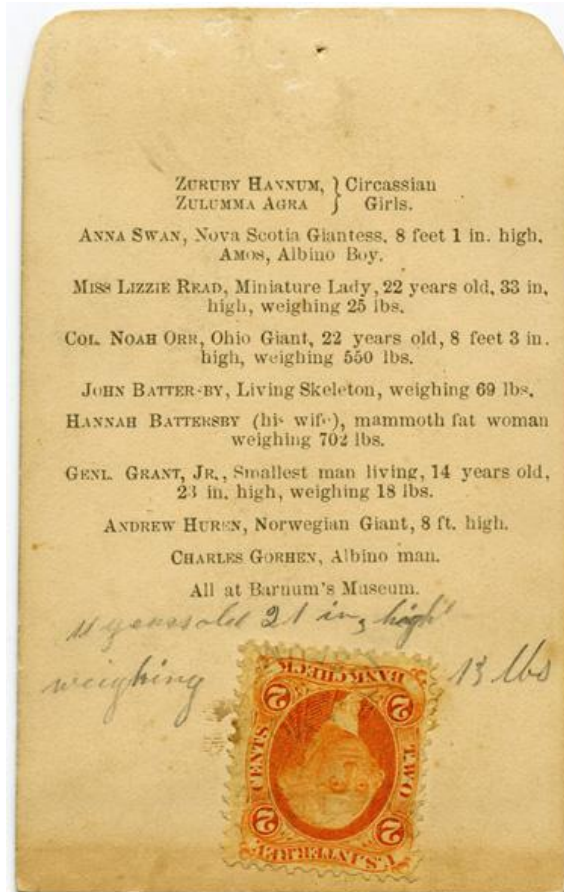 ZURUBY HANNUM, } Circassian
ZULUMMA AGRA } Girls.
ANNA SWAN, Nova Scotia Giantess, 8 feet 1 in. high.
AMOS, Albino Boy.
MISS LIZZIE READ, Miniature Lady, 22 years old, 33 in.
high, weighing 25 lbs.
COL. NOAH ORR, Ohio Giant, 22 years old, 8 feet 3 in.
high, weighing 550 lbs.
JOHN BATTERSBY, Living Skeleton, weighing 69 lbs.
HANNAH BATTERSBY (his wife), mammoth fat woman
weighing 702 lbs.
GENL. GRANT, JR., Smallest man living, 14 years old,
23 in. high, weighing 18 lbs.
ANDREW HUREN, Norwegian Giant, 8 ft. high.
CHARLES GORHEN, Albino man.
All at Barnum's Museum.
years old 21 in, high
weighing 13 lbs
BANK CHECK
2 2
CENTS TWO
2 2
U.S. INTER. REV.